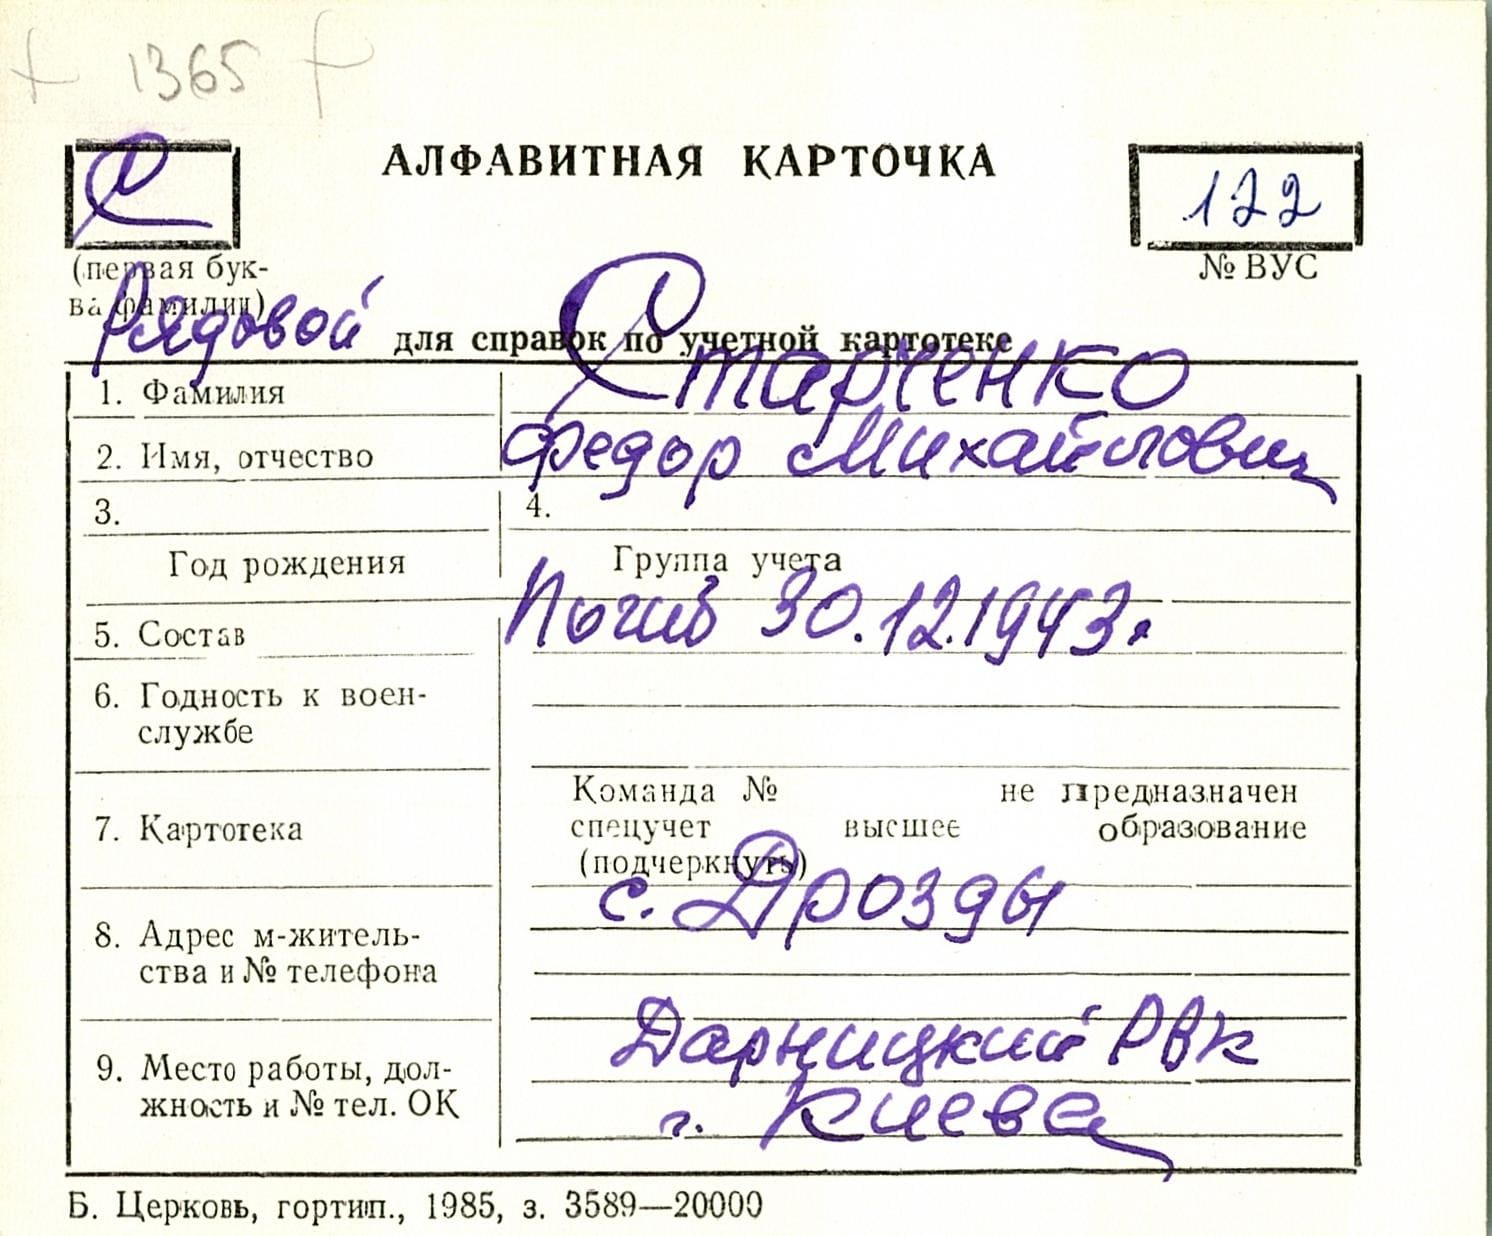 1365
С
АЛФАВИТНАЯ КАРТОЧКА
122
(первая бук-
ва фамилии)
№ ВУС
Рядовой
для справок по учетной картотеке
1. Фамилия Старченко
2. Имя, отчество Федор Михайлович
3. 4.
Год рождения Группа учета
Погиб 30.12.1943г
5. Состав
6. Годность к воен-
службе
Команда № не предназначен
7. Картотека спецучет высшее образование
(подчеркнуть)
с. Дрозды
8. Адрес м-житель-
ства и № телефона
Дарницкий РВК
9. Место работы, дол-
жность и № тел. ОК
г. Киева
Б. Церковь, гортип., 1985, з. 3589—20000